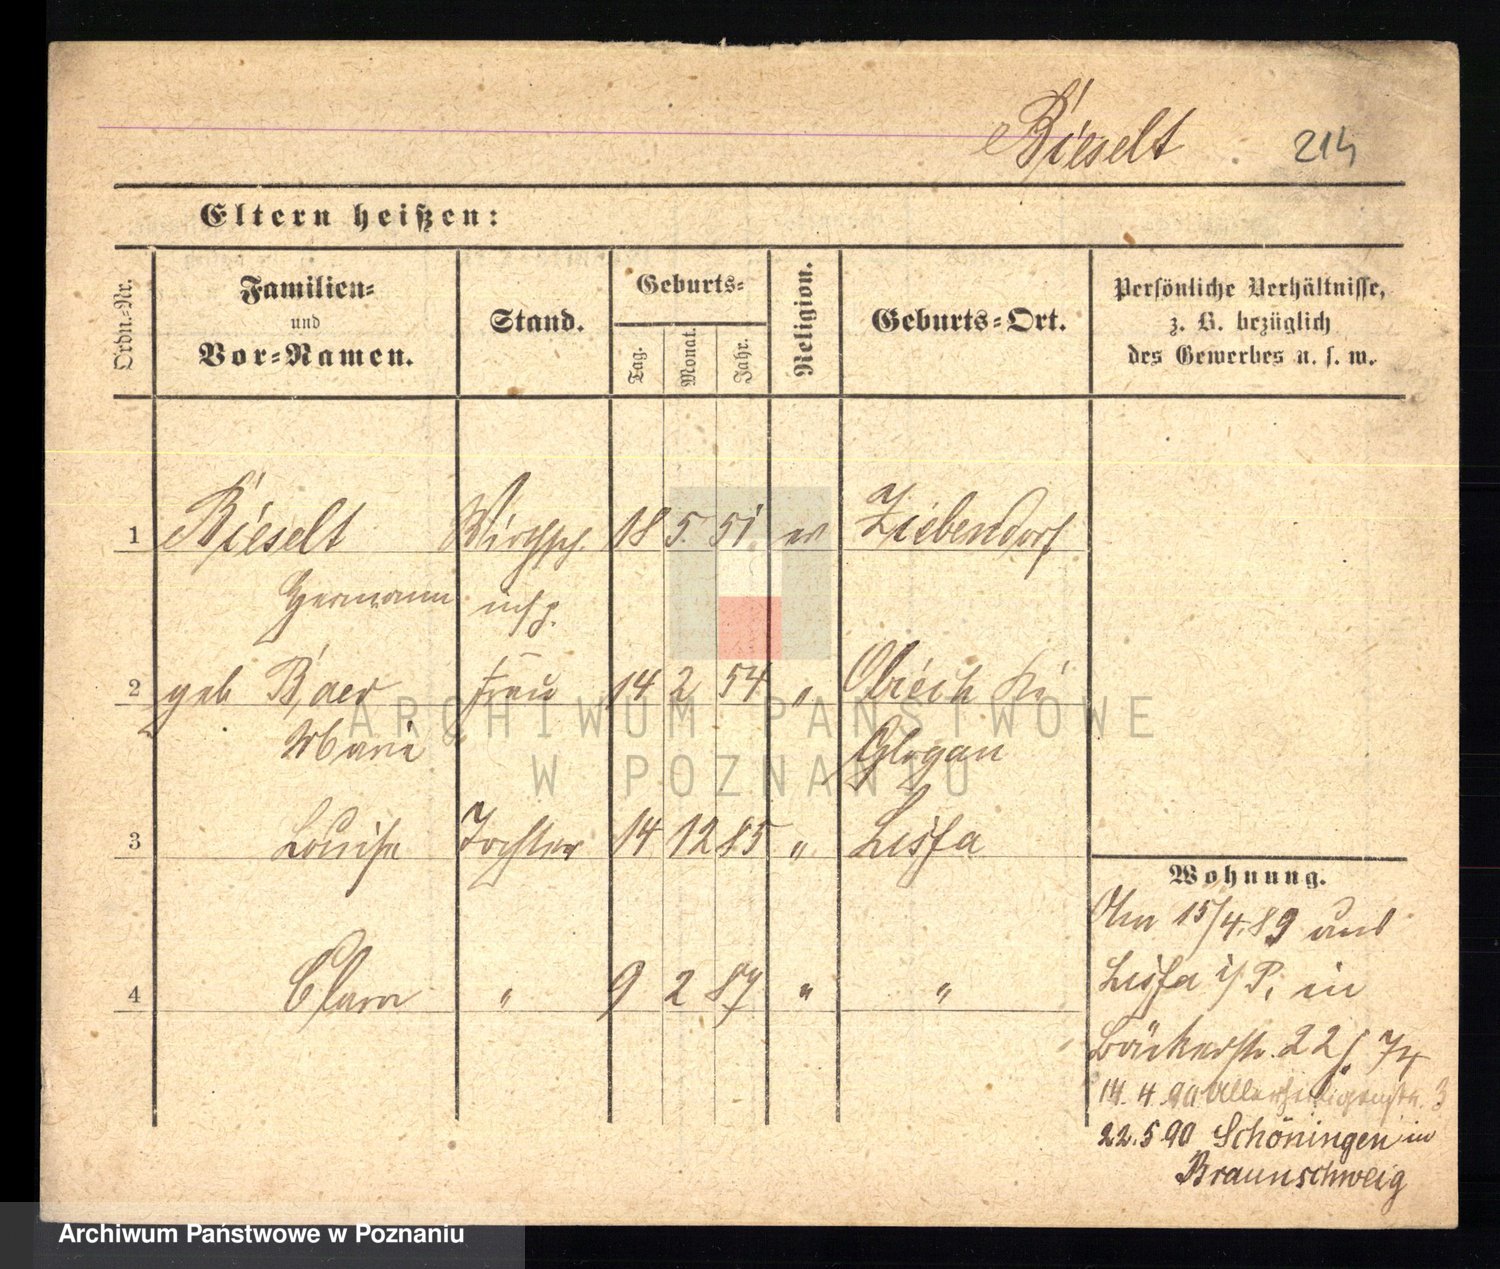 Bieselt 214
Eltern heißen:
Ordn.-Nr. Familien- und Vor-Namen. Stand. Geburts- Tag. Monat. Jahr. Religion. Geburts-Ort. Persönliche Verhältnisse, z. B. bezüglich des Gewerbes u. s. w.
1 Bieselt Wirthsch. 18 5 51 ev Ziebendorf
Hermann insp.
2 geb Baer Frau 14 2 54 "
Marie Glogau
3 Louise Tochter 14 12 85 " Lissa
Wohnung.
15/4.89 aus
4 Clara " 9 2 87 " "
Lissa i/P. in
Bäckerstr. 22 74
14.4.90 Allerheiligenstr. 3
22.5 90 Schöningen in
Braunschweig
ARCHIWUM PAŃSTWOWE
W POZNANIU
Archiwum Państwowe w Poznaniu